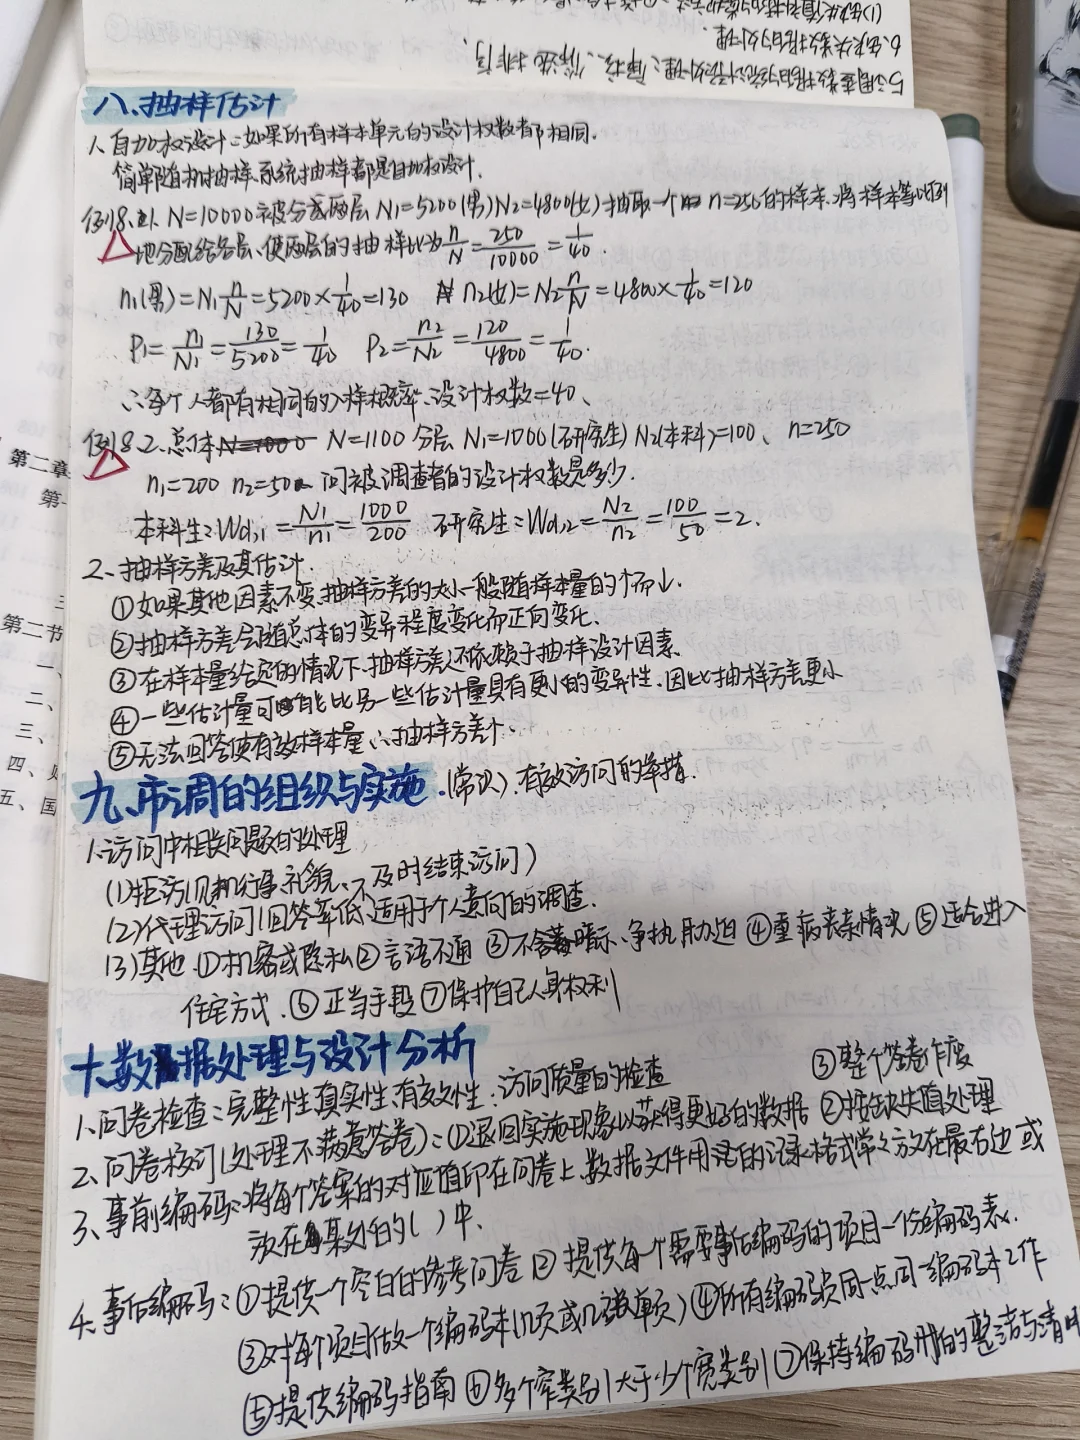 5.调查数据的统计预处理:
6.缺失数据的处理
八、抽样估计
1.自加权设计:如果所有样本单元的设计权数都相同.
简单随机抽样、系统抽样都是自加权设计.
例18.1. N=10000被分成两层 N1=5200(男)N2=4800(女)抽取一个n=250的样本.将样本等比例
地分配给各层、使两层的抽样比为n/N=250/10000=1/40
n1(男)=N1 n/N=5200×1/40=130 n2(女)=N2 n/N=4800×1/40=120
P1=n1/N1=130/5200=1/40 P2=n2/N2=120/4800=1/40.
∴每个人都有相同的入样概率、设计权数=40、
例18.2.总体N=1000 N=1100 分层 N1=1000(研究生) N2(本科)=100、 n=250
n1=200 n2=50 问被调查者的设计权数是多少.
本科生:Wd,1=N1/n1=1000/200 研究生:Wd,2=N2/n2=100/50=2.
2、抽样方差及其估计.
①如果其他因素不变.抽样方差的大小一般随样本量的↑而↓.
②抽样方差会随总体的变异程度变化而正向变化.
③在样本量给定的情况下.抽样方差还依赖于抽样设计因素.
④一些估计量可能比另一些估计量具有更小的变异性.因此抽样方差更小
⑤无法回答使有效样本量↓∴抽样方差↑.
九、市调的组织与实施.(常识).有效访问的举措.
1.访问中相关问题的处理
(1)拒访(见机行事、礼貌、不及时结束访问)
(2)代理访问(回答率低、适用于个人意向的调查.
(3)其他.①机密或隐私②言语不通 ③不含暗示、争执、胁迫 ④重病丧亲情况 ⑤适合进入
住宅方式.⑥正当手段⑦保护自己人身权利
十.数据处理与设计分析
③整个答卷作废
1.问卷检查:完整性.真实性.有效性:访问质量的检查
2、问卷校订(处理不满意答卷):①退回实施现象以获得更好的数据 ②按缺失值处理
3、事前编码:将每个答案的对应值印在问卷上.数据文件用的记录格式常常放在最右边或
放在某处的( )中.
4.事后编码:①提供一个空白的参考问卷 ②提供每一个需要事后编码的项目一份编码表.
③对每个项目做一个编码本(几页或几张单页)④所有编码员同一点同一编码本工作
⑤提供编码指南 ⑥多个窄类别大于少个宽类别⑦保持编码册的整洁与清
第二章
第二节
二、
三、
四、
五、国